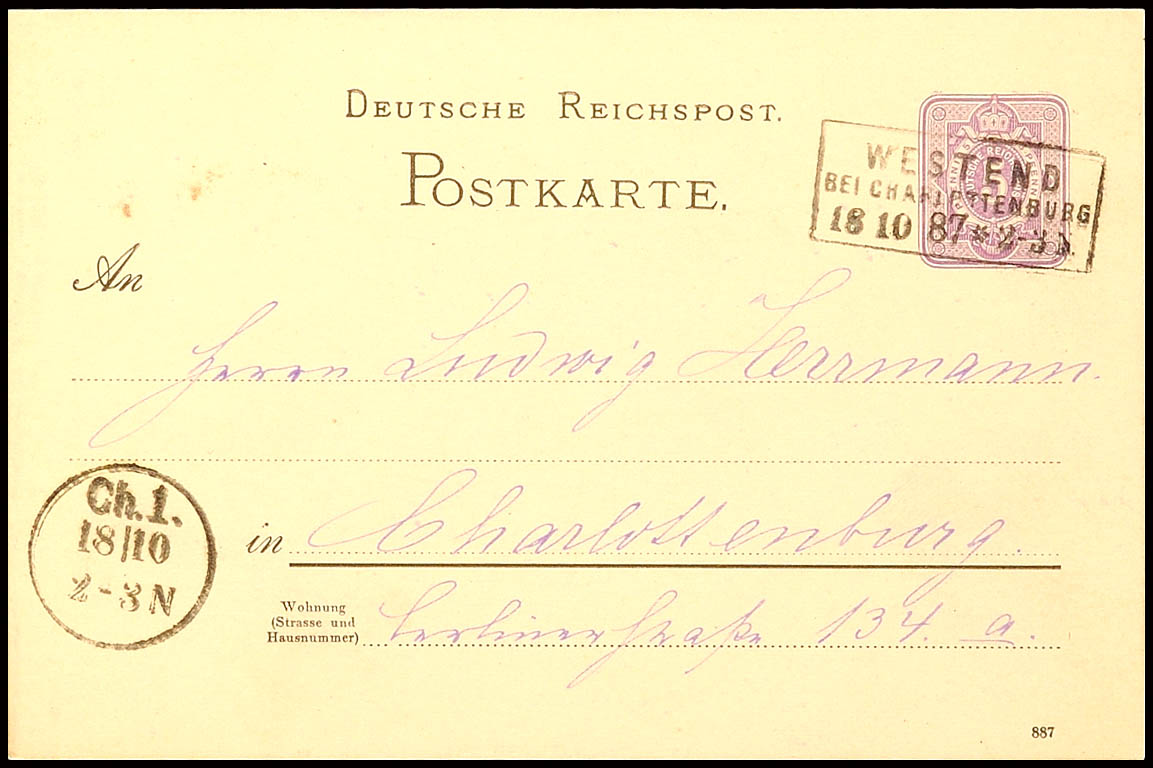 DEUTSCHE REICHSPOST.
POSTKARTE.
WESTEND
BEI CHARLOTTENBURG
18 10 87 * 2-3 N.
PFENNIG 5 PFENNIG
DEUTSCHE REICHSPOST
5
An
Herrn Ludwig Herrmann.
Ch. 1.
18/10
2-3 N
in Charlottenburg.
Wohnung
(Strasse und
Hausnummer)
Berlinerstraße 134. a.
887